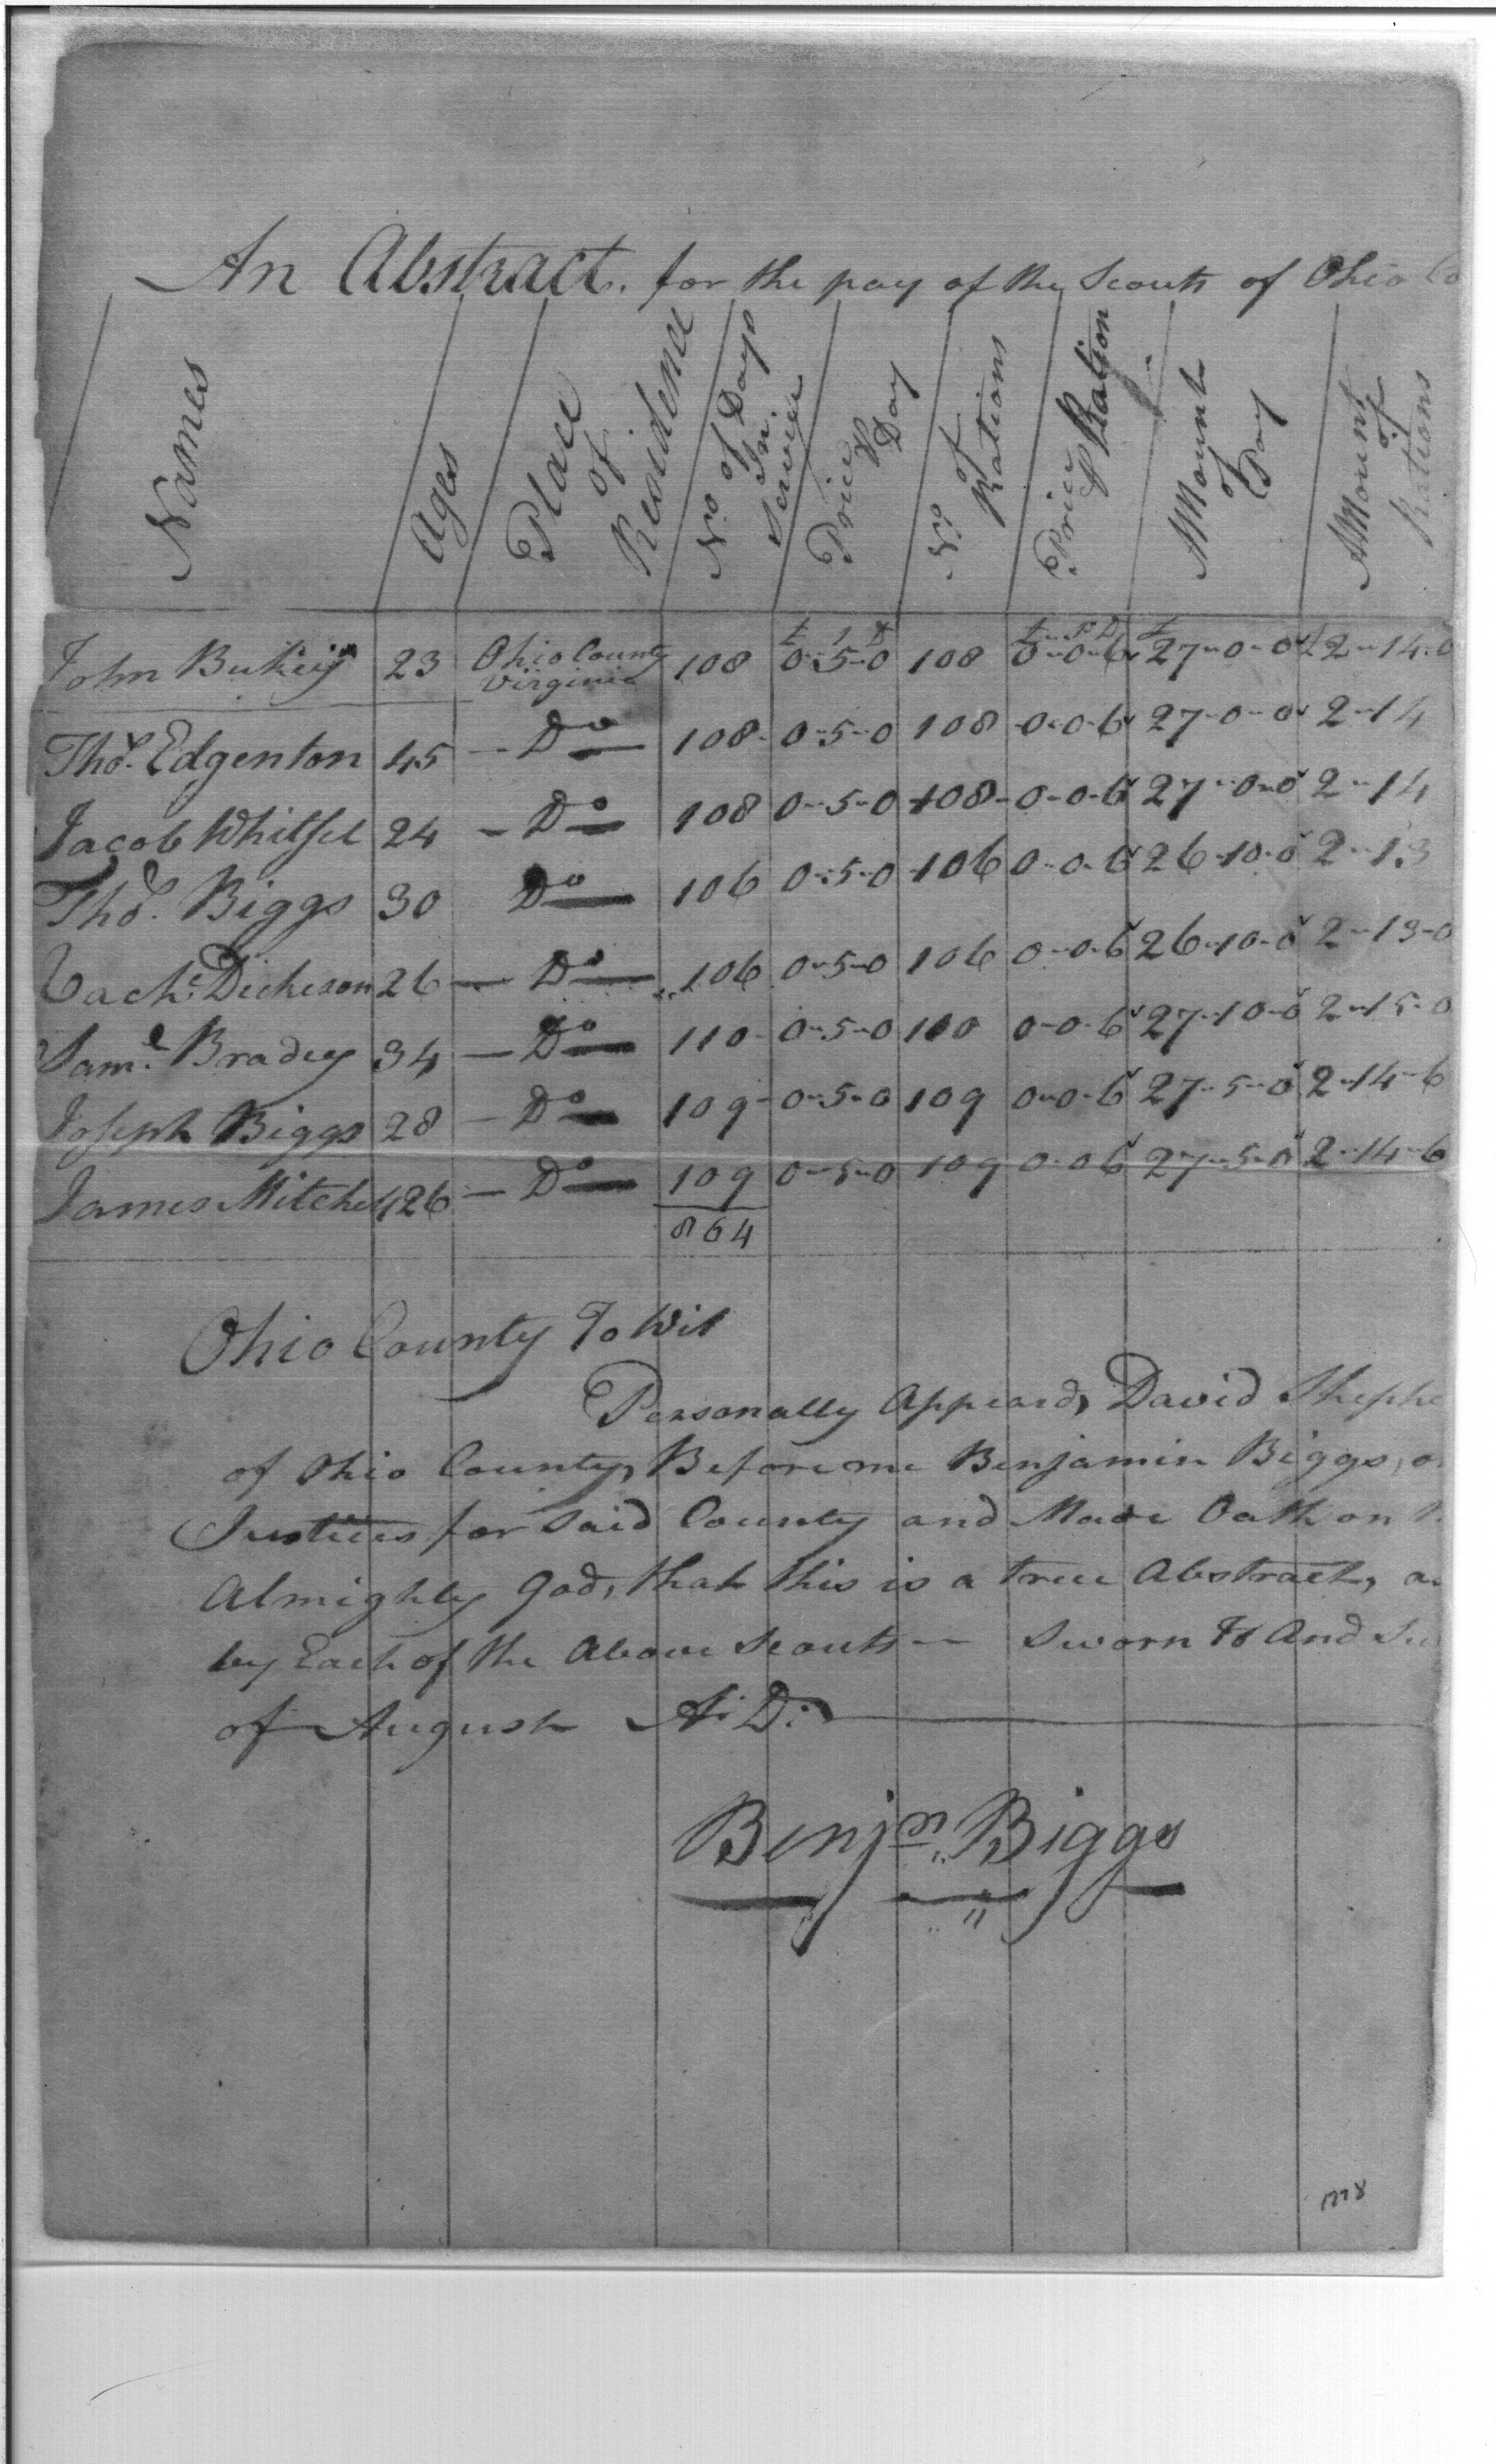 An Abstract. for the pay of the Scouts of Ohio Co
Names
Ages
Place of Residence
No. of Days In Service
Price ⅌ Day
No. of Rations
Price ⅌ Ration
AMount of Pay
AMount of Rations
£ S D £ S D £
John 23 Ohio County Virginia 108 0-5-0 108 0-0-6 27-0-0 2-14-0
Thos. Edgenton 45 - Do 108 0-5-0 108 0-0-6 27-0-0 2-14
Jacob Whitsel 24 - Do 108 0-5-0 108 0-0-6 27-0-0 2-14
Thos. Biggs 30 Do 106 0-5-0 106 0-0-6 26-10-0 2-13
Zachr. Dickeson 26 - Do 106 0-5-0 106 0-0-6 26-10-0 2-13-0
Saml. Bradey 34 - Do 110 0-5-0 110 0-0-6 27-10-0 2-15-0
Joseph Biggs 28 - Do 109 0-5-0 109 0-0-6 27-5-0 2-14-6
James Mitchell 26 - Do 109 0-5-0 109 0-0-6 27-5-0 2-14-6
864
Ohio County To Wit
Personally Appeard, David Shephe
of Ohio County, Before me Benjamin Biggs, o
Justices for Said County and Made Oath on
Almighty God, that this is a true Abstract, a
by Each of the Above Scouts — Sworn to And Su
of August A:D:
Benjn. Biggs